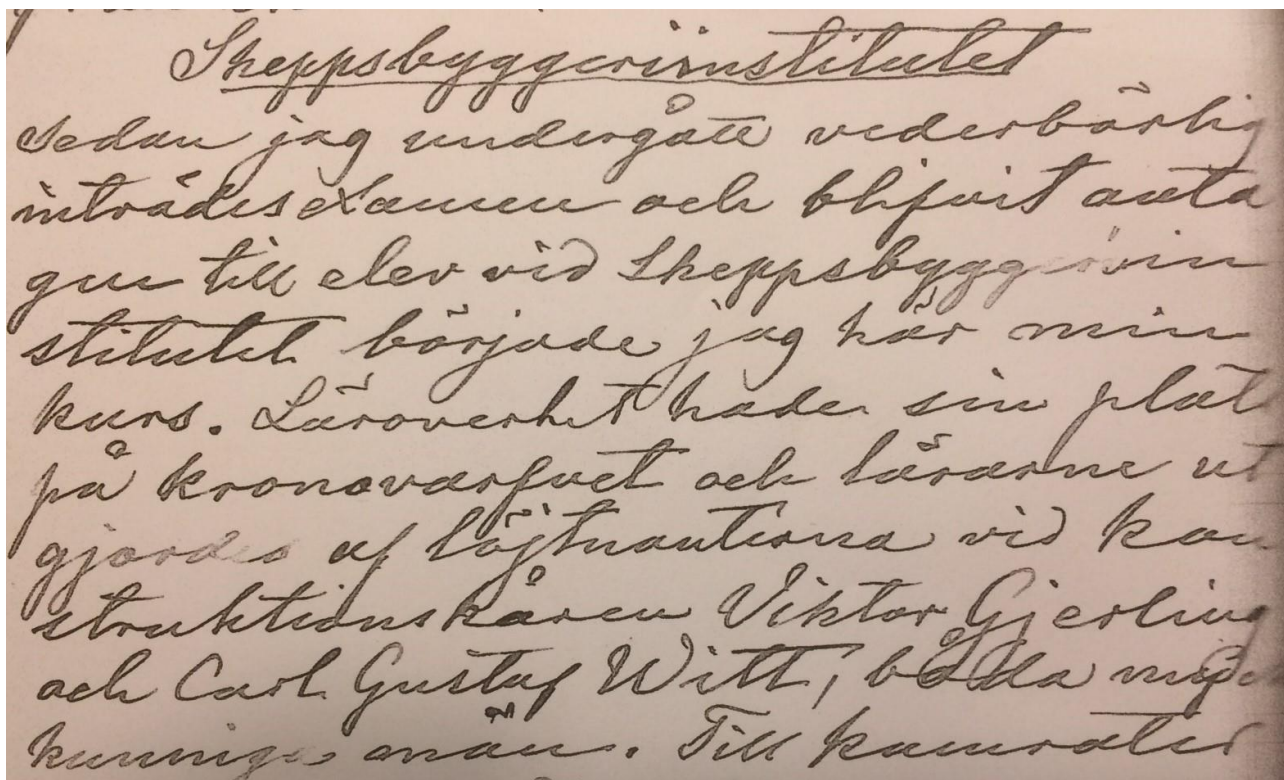 Skeppsbyggeriinstitutet
Sedan jag undergått vederbörlig
inträdesexamen och blifvit anta
gen till elev vid Skeppsbyggeriin
stitutet började jag här min
kurs. Läroverket hade sin plats
på kronovarfvet och lärarne ut
gjordes af löjtnanterna vid kon
struktionskåren Viktor Gjerling
och Carl Gustaf Witt, båda
kunniga män. Till kamrater